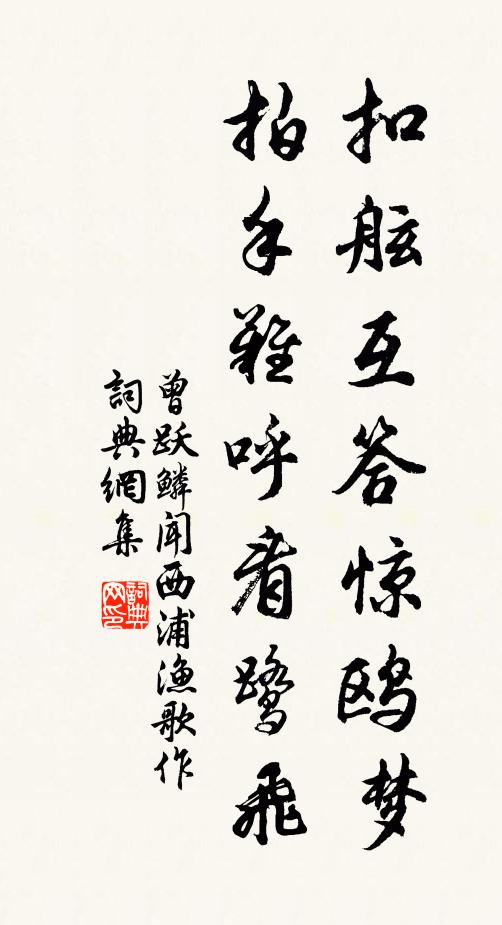 扣舷互答惊鸥梦
拍手难呼看鹭飛
曾跃鳞闻西浦渔歌作
詞典網集
詞典网印